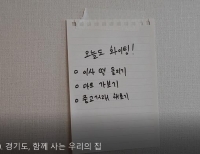 오늘도 화이팅!
o 이사 떡 돌리기
o 마트 가보기
o 중고거래 해보기
. 경기도, 함께 사는 우리의 집